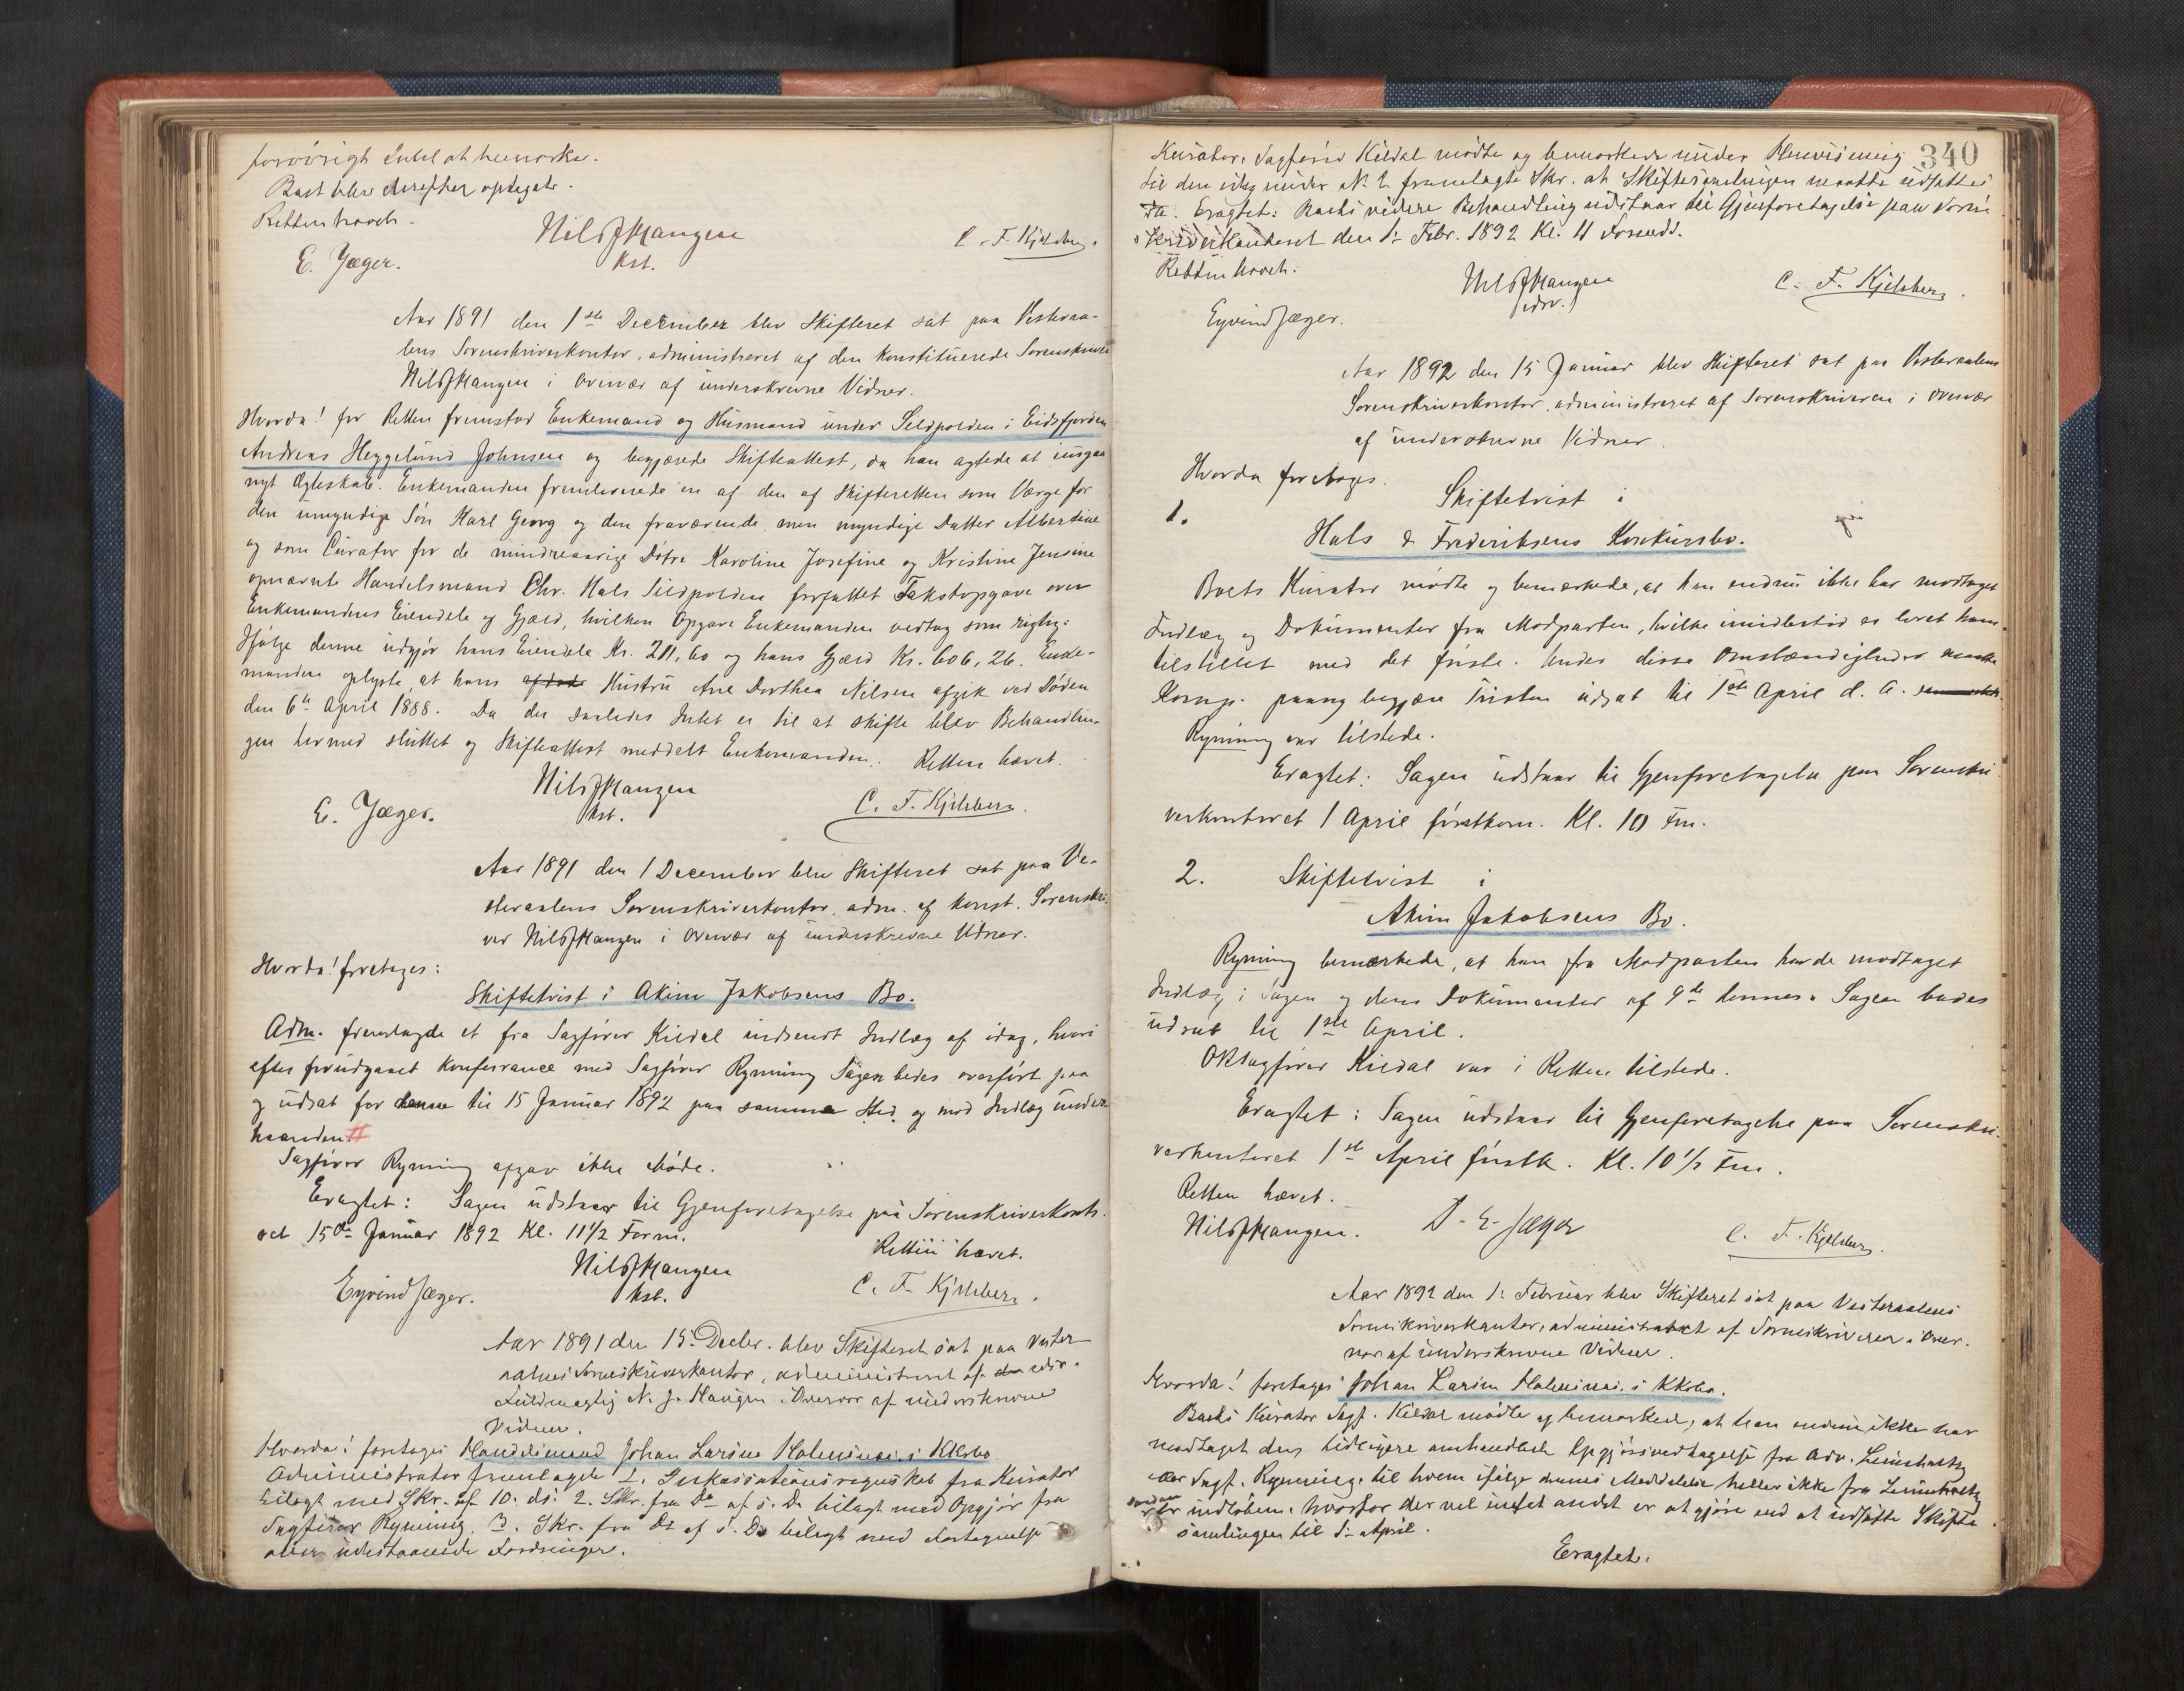 forøvrigt Intet at bemærke.
Boet blev derefter optaget.
Retten hævet.
E. Jæger.
Nils J Haugen
kst.
C. F. Kjelsberg.
Aar 1891 den 1ste December blev Skifteret sat paa Vesteraa-
lens Sorenskriverkontor, administreret af den konstituerede Sorenskriver
Nils J Haugen i Overvær af underskrevne Vidner.
Hvorda! for Retten fremstod Enkemand og Husmand under Sildpolden i Eidsfjorden
Andreas Heggelund Johnsen og begjærede Skifteattest, da han agtede at indgaa
nyt Ægteskab. Enkemanden fremleverede en af den af Skifteretten som Værge for
den umyndige Søn Karl Georg og den fraværende, men myndige Datter Albertine
og som Curator for de mindreaarige Døtre Karoline Josefine og Kristine Jensine
opnævnte Handelsmand Chr. Hals Sildpolden forfattet Takstopgave over
Enkemandens Eiendele og Gjæld, hvilken Opgave Enkemanden vedtog som rigtig.
Ifølge denne udgjør hans Eiendele Kr. 211,60 og hans Gjæld Kr. 606,26. Enke-
manden oplyste, at hans afdøde Hustru Ane Dorthea Nilsen afgik ved Døden
den 6te April 1888. Da der saaledes Intet er til at skifte blev Behandlin-
gen hermed sluttet og Skifteattest meddelt Enkemanden. Retten hævet.
E. Jæger.
Nils J Haugen
kst.
C. F. Kjelsberg.
Aar 1891 den 1 December blev Skifteret sat paa Ve-
steraalens Sorenskriverkontor, adm. af konst. Sorenskri-
ver Nils J Haugen i Overvær af underskrevne Vidner.
Hvorda! foretoges:
Skiftetvist i Akim Jakobsens Bo.
Adm. fremlagde et fra Sagfører Kildal indsendt Indlæg af idag, hvori
efter forudgaaet Konferrance med Sagfører Rynning Sagen bedes overført paa
og udsat for denne til 15 Januar 1892 paa samme Sted og mod Indlæg under-
haanden.
Sagfører Rynning afgav ikke Møde.
Eragtet: Sagen udstaar til Gjenforetagelse paa Sorenskriverkonto-
ret 15de Januar 1892 Kl. 11½ Form.
Retten hævet.
Eyvind Jæger.
Nils J Haugen
kst.
C. F. Kjelsberg.
Aar 1891 den 15. Decbr. blev Skifteret sat paa Vester-
aalens Sorenskriverkontor, administreret af den edsv.
Fuldmægtig N. J. Haugen i Overvær af underskrevne
Vidner.
Hvorda! foretoges Handelsmand Johan Larsen Holmsnes's Kkbo.
Administrator fremlagde 1. Inkassationsregnskab fra Kurator
bilagt med Skr. af 10. ds. 2. Skr. fra Do af s. D. bilagt med Opgjør fra
Sagfører Rynning. 3. Skr. fra Do af s. D. bilagt med Fortegnelse
over udestaaende Fordringer.
340
Kurator, Sagfører Kildal mødte og bemærkede under Henvisning
til den idag under No 2 fremlagte Skr. at Skiftesamlingen maatte udsættes
Eragtet: Boets videre Behandling udstaar til Gjenforetagelse paa Soren-
skriverkontoret den 1. Febr. 1892 Kl. 11 Formd.
Retten hævet.
Eyvind Jæger.
Nils J Haugen
edsv.
C. F. Kjelsberg.
Aar 1892 den 15 Januar blev Skifteret sat paa Vesteraalens
Sorenskriverkontor, administreret af Sorenskriveren i Overvær
af underskrevne Vidner.
Hvorda foretoges.
1.
Skiftetvist i
Hals & Frederiksens Konkursbo.
Boets Kurator mødte og bemærkede, at han endnu ikke har modtaget
Indlæg og Dokumenter fra Modparten, hvilke imidlertid er lovet ham
tilstillet med det første. Under disse Omstændigheder maatte
Komp. paany begjære Tvisten udsat til 1ste April d. A.
Rynning var tilstede.
Eragtet: Sagen udstaar til Gjenforetagelse paa Sorenskri-
verkontoret 1 April førstkom. Kl. 10 Fm.
2.
Skiftetvist i
Akim Jakobsens Bo.
Rynning bemærkede, at han fra Modparten havde modtaget
Indlæg i Sagen og dens Dokumenter af 9de dennes. Sagen bedes
udsat til 1ste April.
OR Sagfører Kildal var i Retten tilstede.
Eragtet: Sagen udstaar til Gjenforetagelse paa Sorenskri-
verkontoret 1ste April førstk. Kl. 10½ Fm.
Retten hævet.
Nils J Haugen.
D. E. Jæger
C. F. Kjelsberg.
Aar 1892 den 1. Februar blev Skifteret sat paa Vesteraalens
Sorenskriverkontor, administreret af Sorenskriveren i Over-
vær af underskrevne Vidner.
Hvorda! foretoges Johan Larsen Holmsnes's KKbo.
Boets Kurator Sagf. Kildal mødte og bemærkede, at han endnu ikke har
modtaget den tidligere omhandlede Opgjørsvedtagelse fra Adv.
Sagf. Rynning, til hvem ifølge dennes Meddelelse heller ikke fra
er indløben, hvorfor der vel intet andet er at gjøre end at udsætte Skifte-
samlingen til 1. April.
Eragtet: